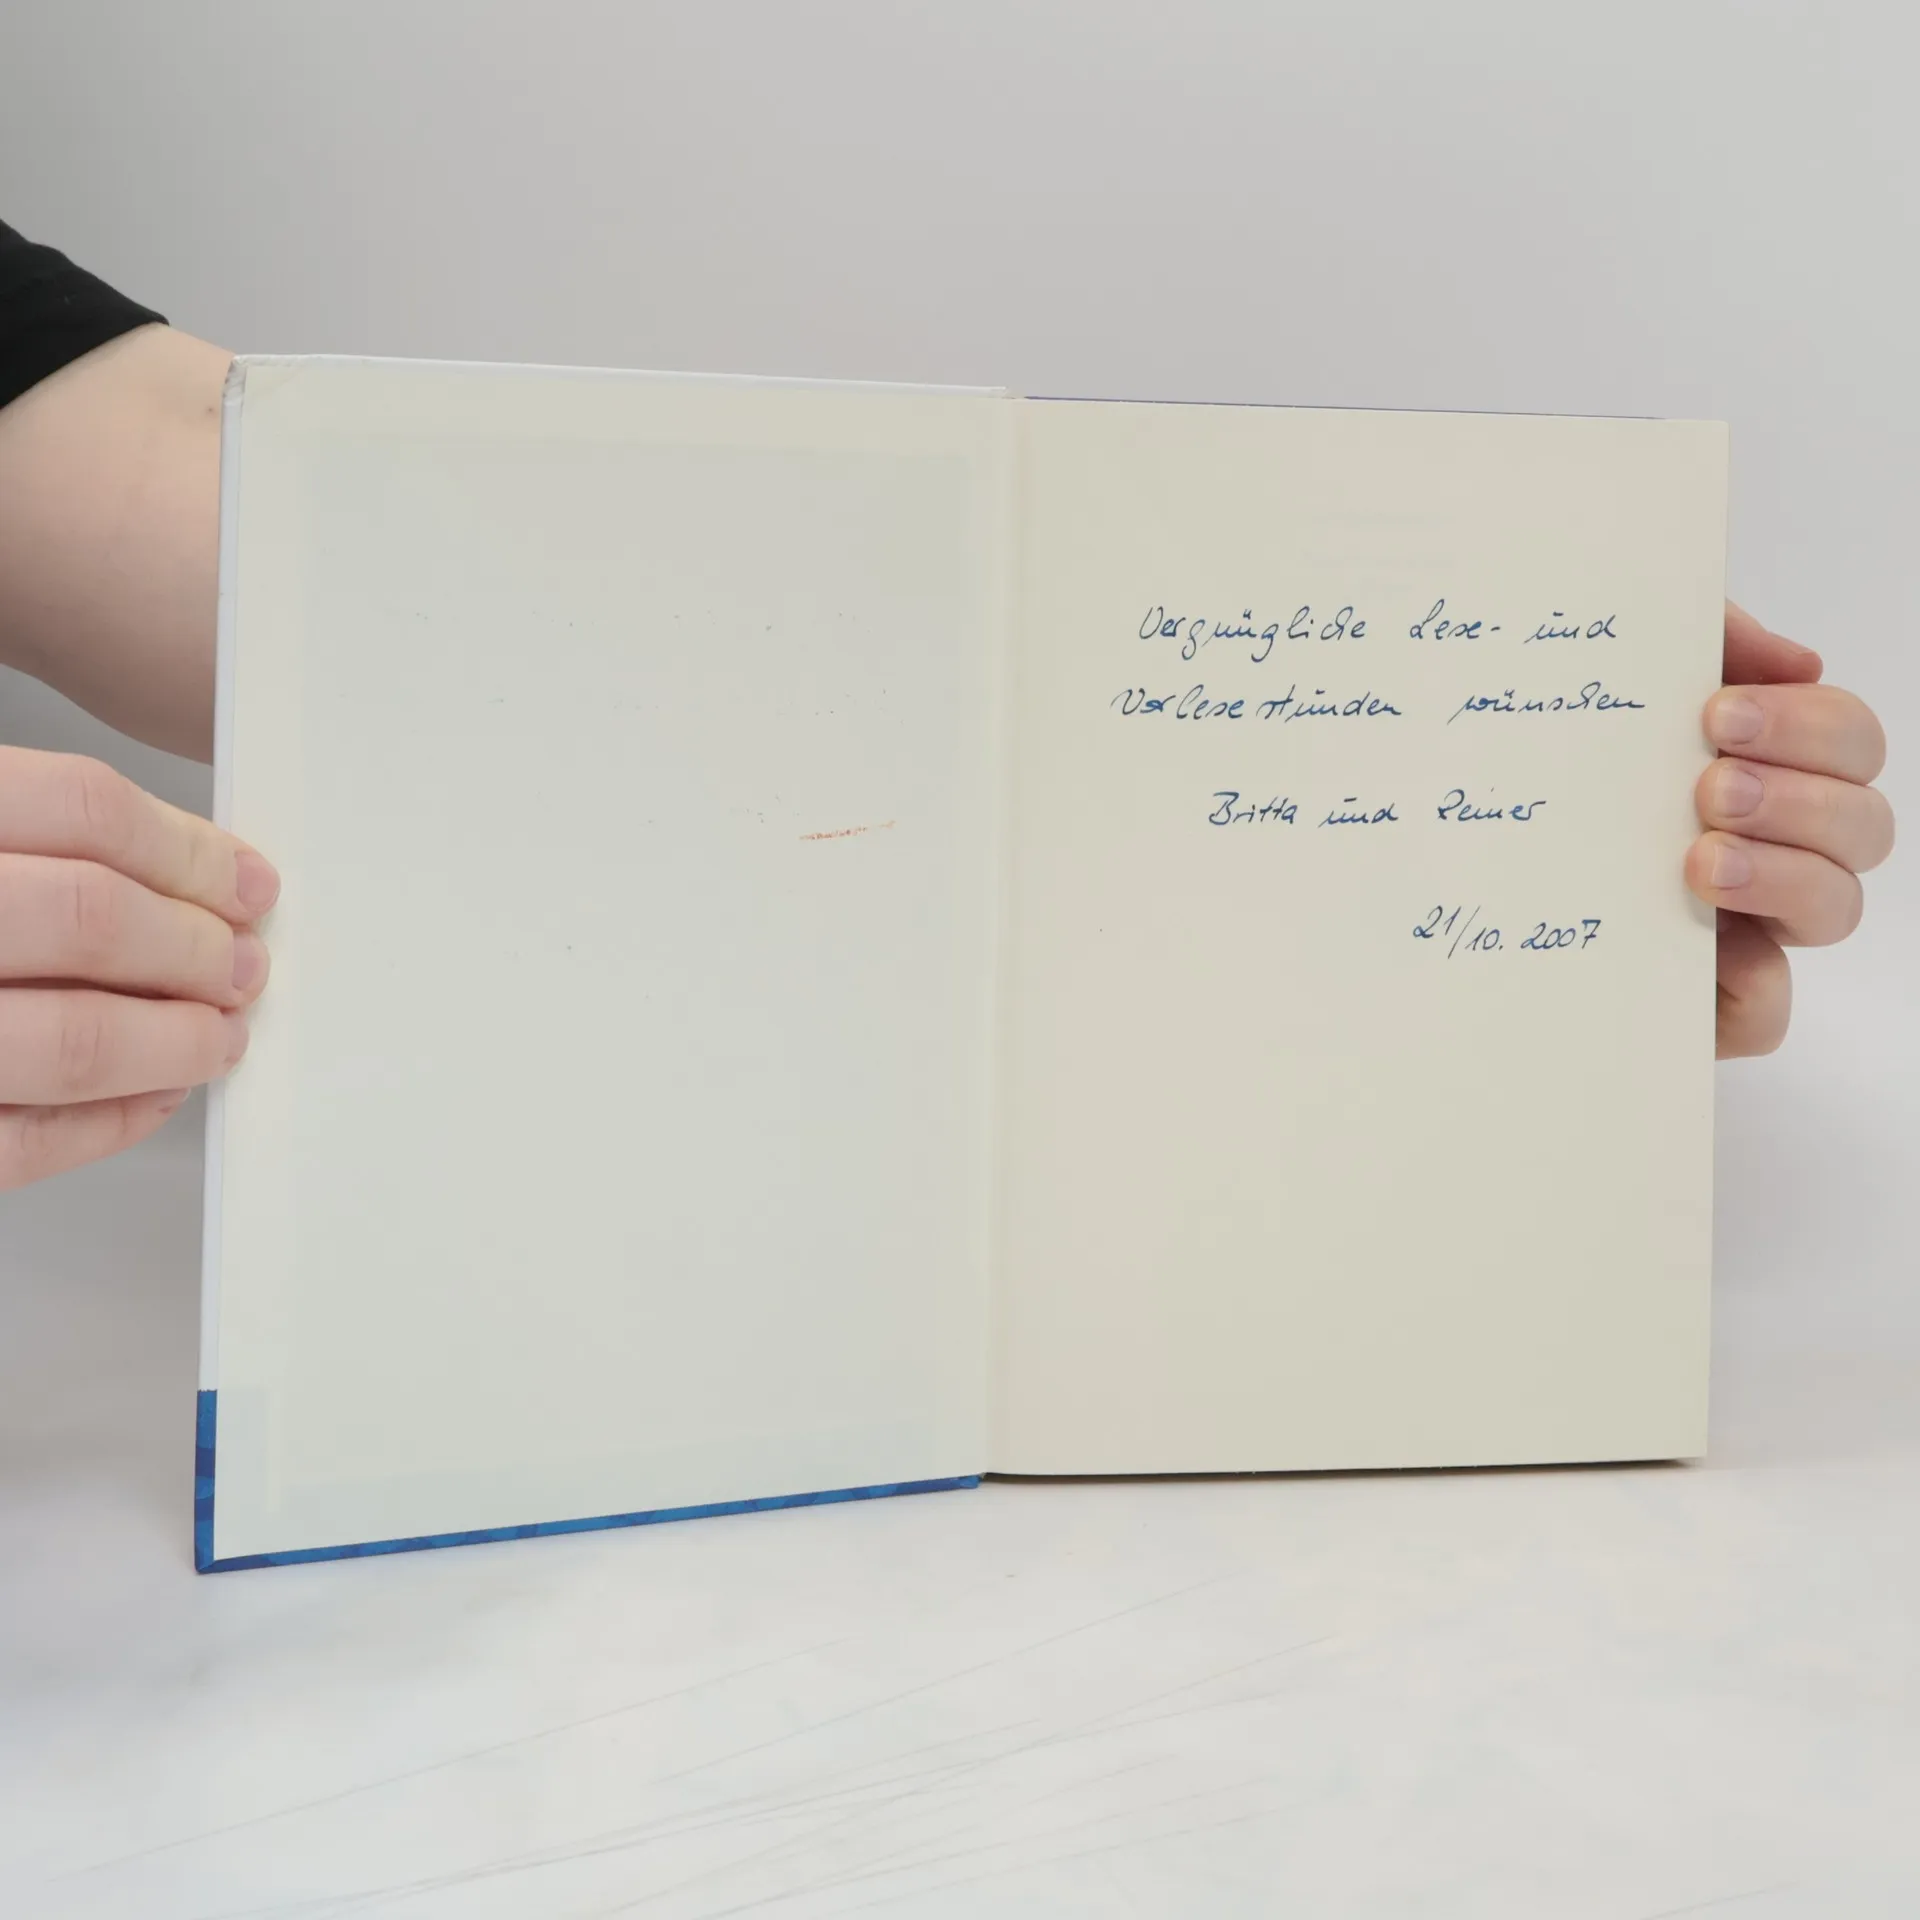 Vergnügliche Lese- und
Vorlesestunden wünschen
Britta und Reiner
21/10. 2007